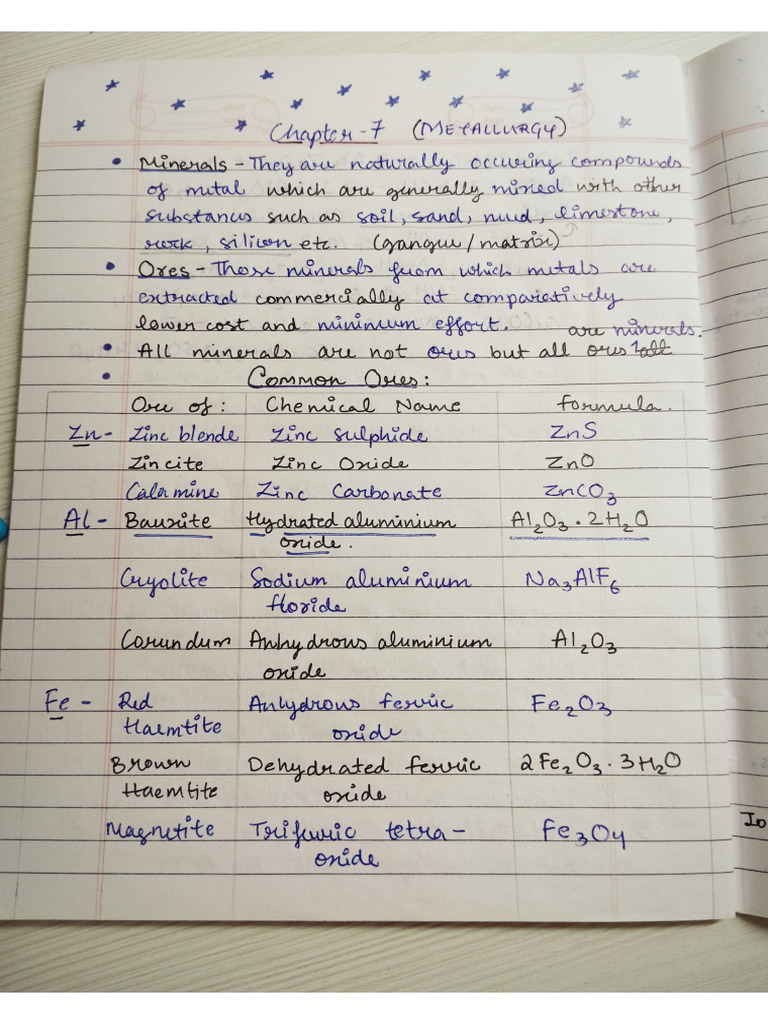 Chapter-7 (METALLURGY)
• Minerals - They are naturally occuring compounds
of metal which are generally mixed with other
substances such as soil, sand, mud, limestone,
rock, silicon etc. (gangue/matrix)
• Ores - Those minerals from which metals are
extracted commercially at comparetively
lower cost and minimum effort.
• All minerals are not ores but all ores are minerals.
• Common Ores:
Ore of: Chemical Name formula.
Zn - Zinc blende Zinc sulphide ZnS
Zincite Zinc Oxide ZnO
Calamine Zinc Carbonate ZnCO₃
Al - Bauxite Hydrated aluminium Al₂O₃·2H₂O
oxide.
Cryolite Sodium aluminium Na₃AlF₆
floride
Corundum Anhydrous aluminium Al₂O₃
oxide
Fe - Red Anhydrous ferric Fe₂O₃
Haemtite oxide
Brown Dehydrated ferric 2Fe₂O₃·3H₂O
Haemtite oxide
Magnetite Triferric tetra- Fe₃O₄
oxide
Io